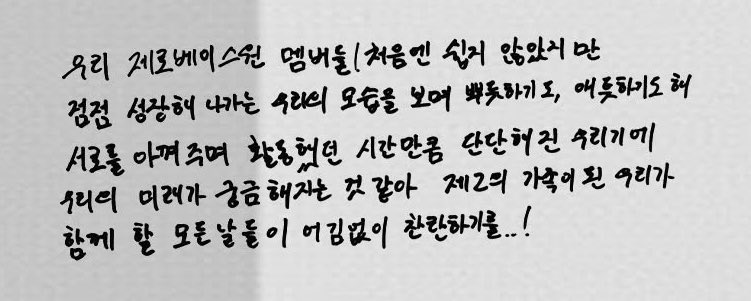 우리 제로베이스원 멤버들! 처음엔 쉽지 않았지만
점점 성장해 나가는 우리의 모습을 보며 뿌듯하기도, 애틋하기도 해
서로를 아껴주며 활동했던 시간만큼 단단해진 우리기에
우리의 미래가 궁금해지는 것 같아 제2의 가족이 된 우리가
함께 할 모든 날들이 어김없이 찬란하기를..!